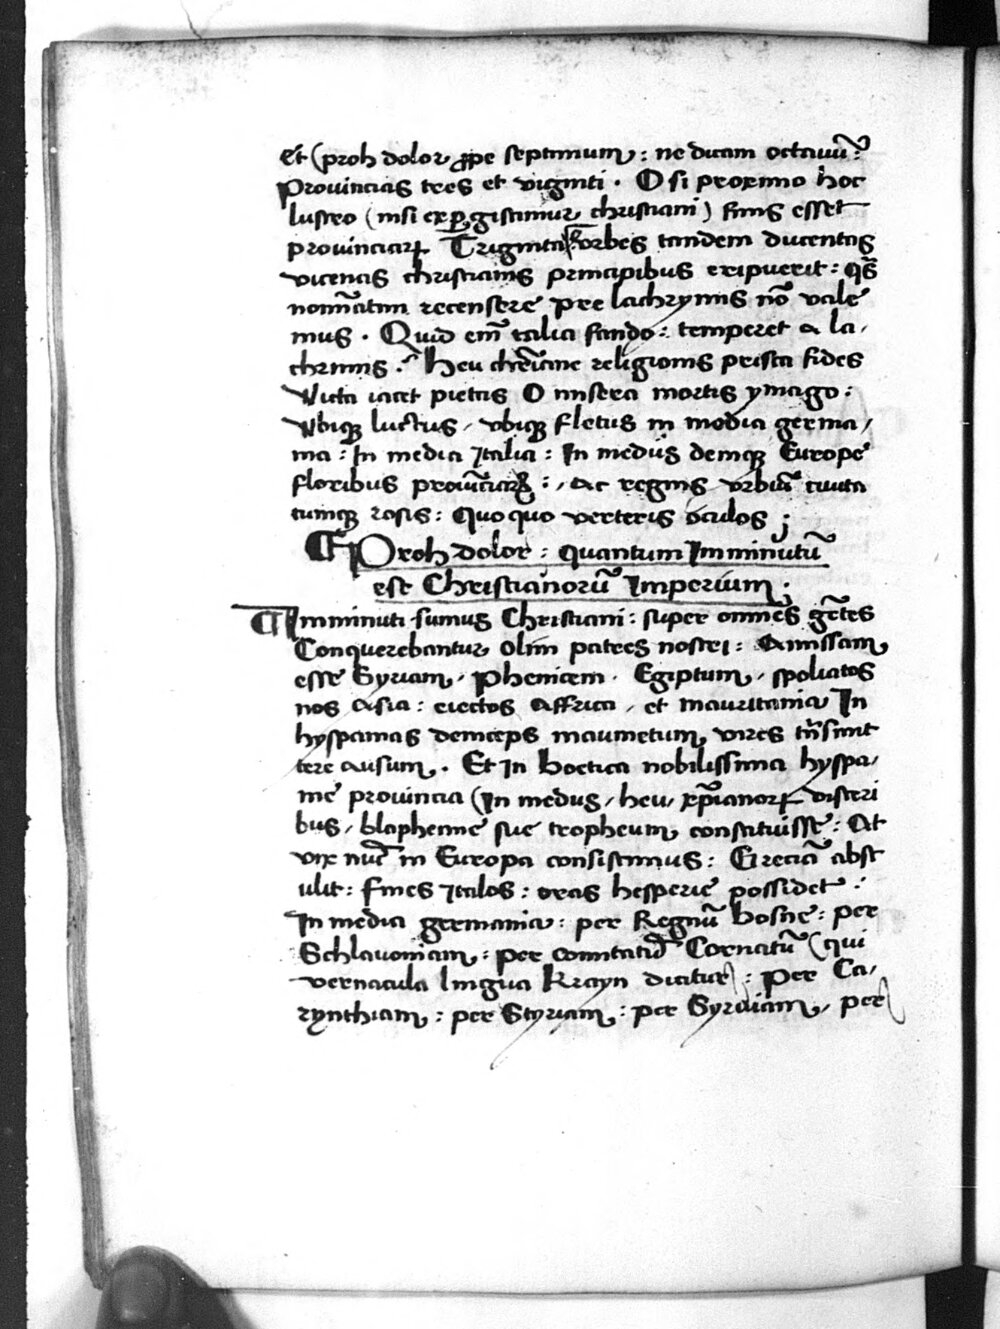 Et (proh dolor ꝓpe septimum : ne dicam octauū :
Prouincias tres et viginti . O si proximo hoc
lustro (nisi exꝑgiscimur christiani) finis esset
prouinciarꝝ Triginta vrbes tandem ducentas
vicenas christianis principibus eripuerit : qͣs
nomīatim recensere pre lachrymis nō vale
mus . Quid em̄ talia fando : temperet a la,
chrimis . Heu chrēiane religionis prisca fides
Victa iacet pietas O misera mortis ymago :
Vbiqꝫ luctus, vbiqꝫ fletus in media germa,
nia : In media Italia : In mediis deniqꝫ Europe
floribus prouīciarꝝ : , ac regnis vrbiū ciuita
tumqꝫ rosis : Quoquo verteris oculos ;
Proh dolor : quantum Imminutū
est Christianorū Imperium ;
Imminuti sumus Christiani : super omnes gētes
Conquerebantur olim patres nostri : Amissam
esse Syriam, Phenicem . Egiptum, spoliatos
nos Asia : eiectos Affrica, et mauritania In
hyspanias deinceps maumetum, vires trāsmit
tere ausum . Et In boetica nobilissima hyspa,
nie prouincia (In medijs, heu, xp̄ianorꝝ visceri
bus, blaphemie sue tropheum constituisse : At
vix nūc in Europa consistimus : Greciā abst
ulit : fines Italos : oras hesperie possidet .
In media germania : per Regnū bosne : per
Schlauoniam : per comitatū Cornatū (qui
vernacula lingua Krayn dicitur) : per Ca,
rynthiam : per Styriam : per Syruiam, per